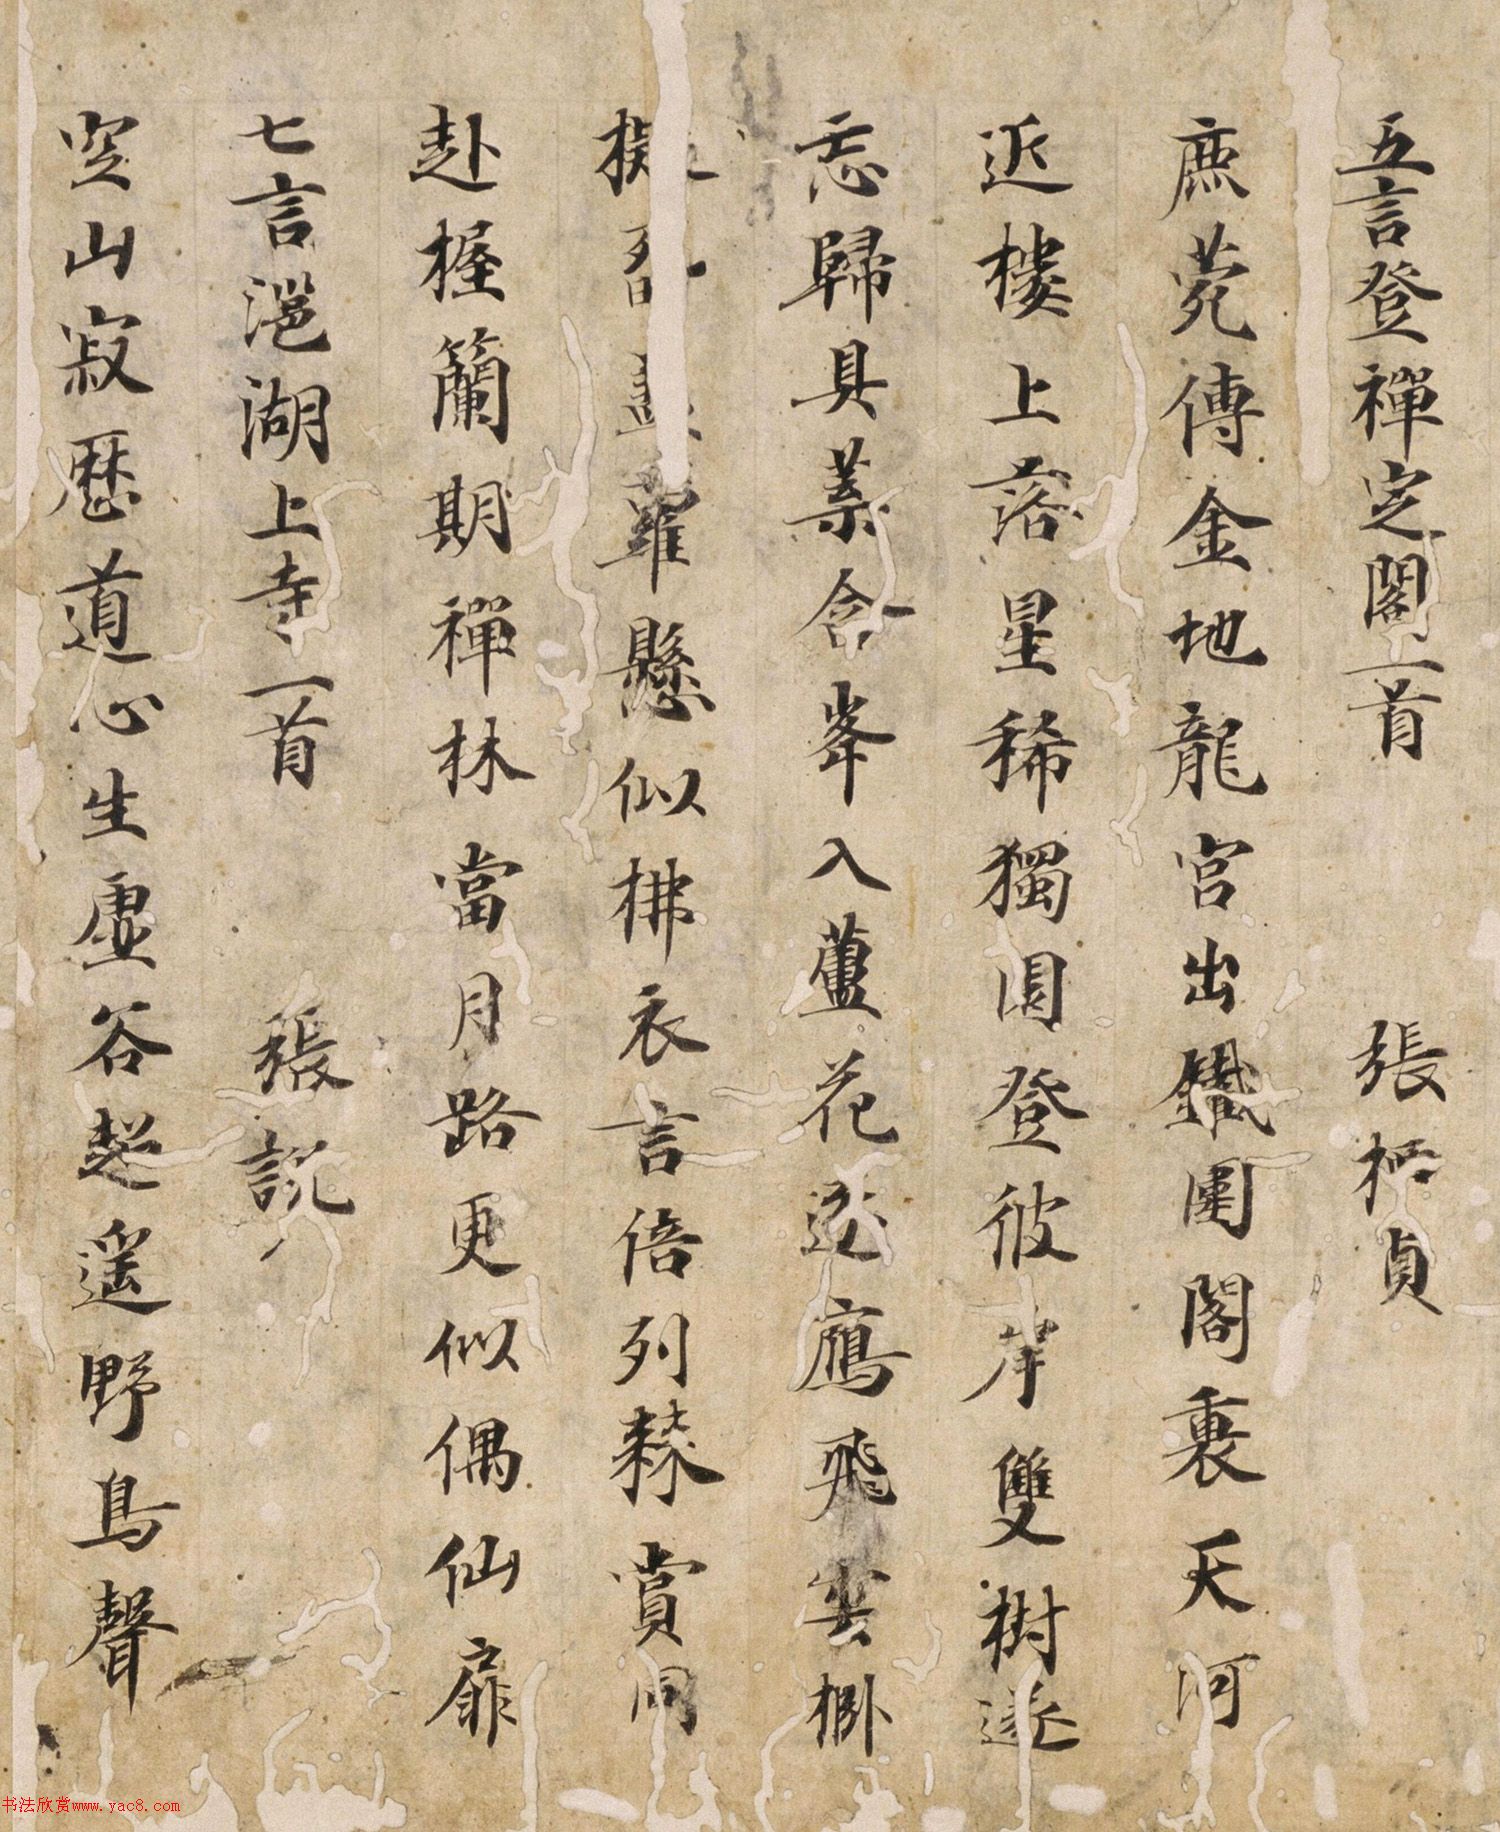 五言登禪定閣一首 張栖貞
庶菀傳金地龍宮出鐵圍閣裏天河
近樓上落星稀獨圓登彼岸雙樹遂
忘歸具葉含峯入蘆花逐鴈飛雲楣
羅懸似拂衣言倍列棘賞同
赴握蘭期禪林當月路更似偶仙扉
七言漫湖上寺一首 張說
空山寂歷道心生虛谷超遥野鳥聲
书法欣赏www.yac8.com